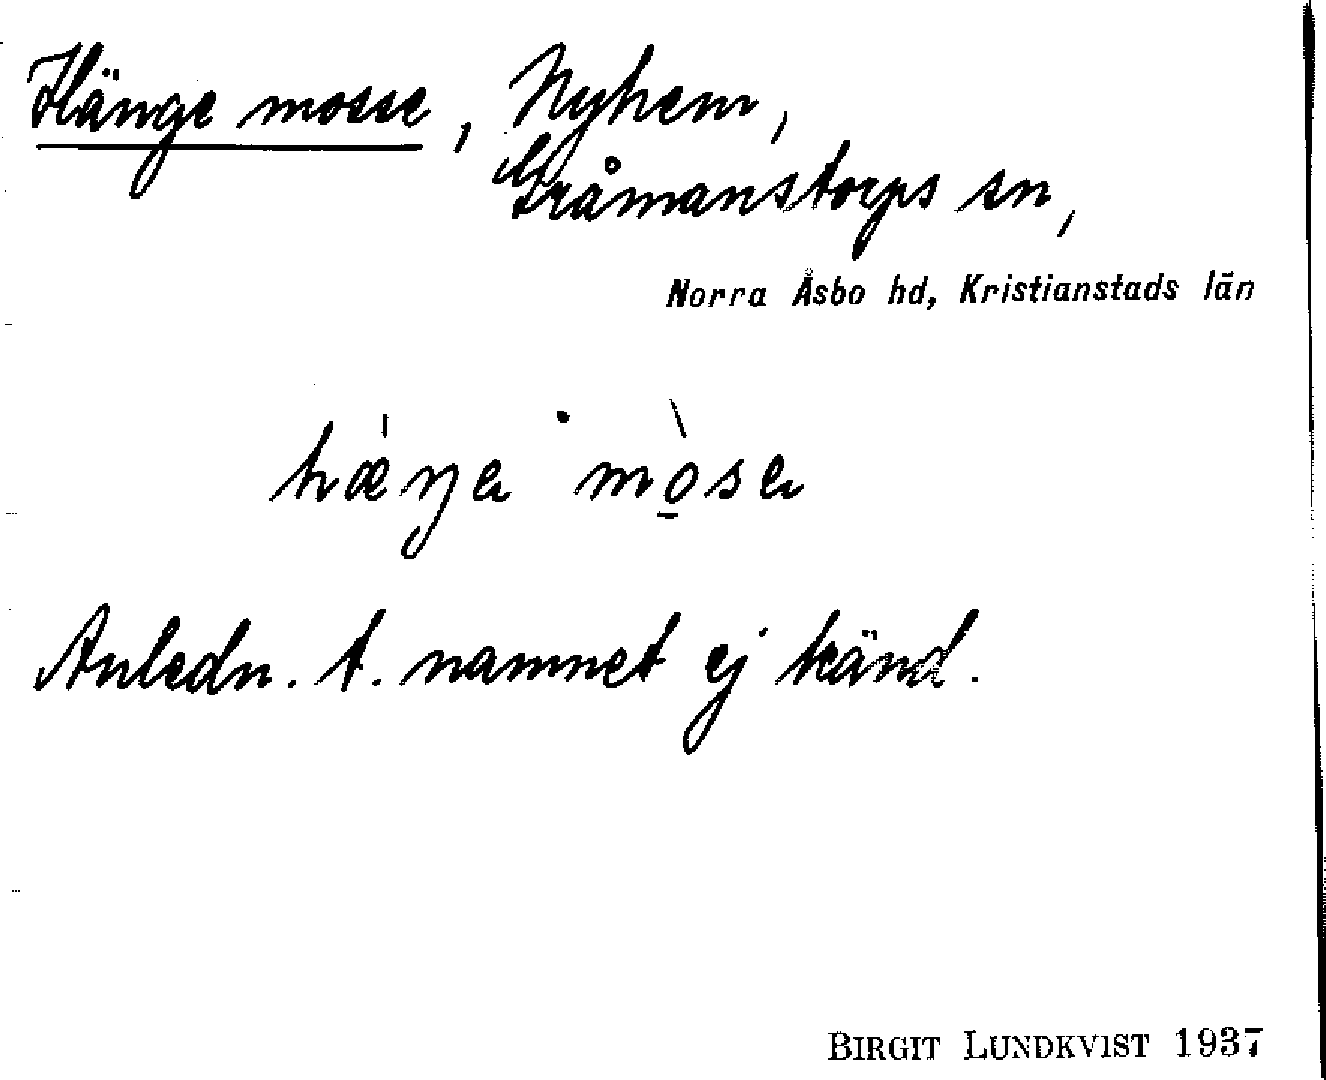 Hänge mosse, Nyhem,
Gråmanstorps sn,
Norra Åsbo hd, Kristianstads län
hæŋe mòse
Anledn. t. namnet ej känd.
BIRGIT LUNDKVIST 1937